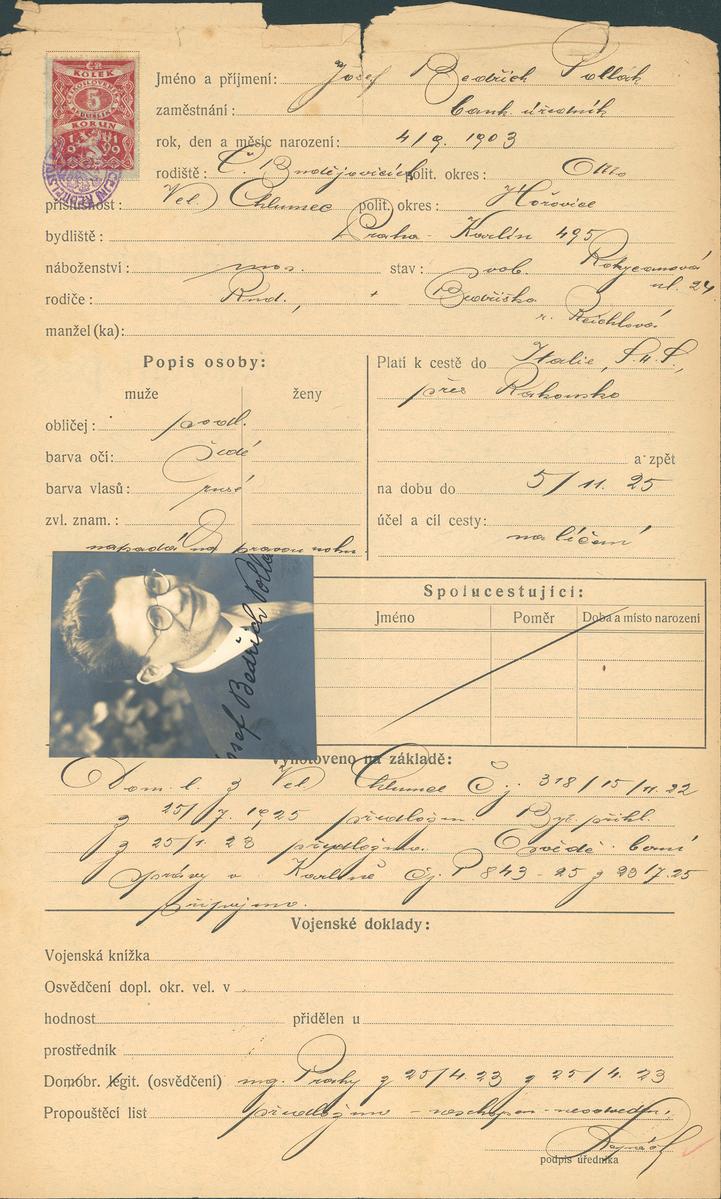 ČR
KOLEK
ČESKOSLOVENSKÁ
5
REPUBLIKA
KORUN
1919
Jméno a příjmení: Josef Bedřich Pollák
zaměstnání: bank. úředník
rok, den a měsíc narození: 4/9. 1903
rodiště: Č. Budějovicích polit. okres: Otto
příslušnost: Vel. Chlumec polit. okres: Hořovice
bydliště: Praha-Karlín 495 Rokycanova
náboženství: mos. stav: svob. ul. 24
rodiče: Rud. + Bedřiška
r. Reichlová
manžel (ka):
Popis osoby:
muže ženy
obličej: podl.
barva očí: šedé
barva vlasů: rusé
zvl. znam.:
napadá na pravou nohu
Platí k cestě do Italie, S.H.S.,
přes Rakousko
a zpět
na dobu do 5/11. 25
účel a cíl cesty:
na léčení
Josef Bedřich Pollák
Spolucestující:
Jméno Poměr Doba a místo narození
Vyhotoveno na základě:
Dom. l. z Vel. Chlumec Čj. 318/15/11. 22
z 25/7. 1925 předložm. Byt. přihl.
z 25/1. 23 předložmo. Osvědč. berní
správy v Karlíně čj. P 843-25 z 23/7. 25
připojmo.
Vojenské doklady:
Vojenská knížka
Osvědčení dopl. okr. vel. v
hodnost přidělen u
prostředník
Domobr. legit. (osvědčení) mg. Prahy z 25/4. 23 z 25/4. 23
Propouštěcí list předložmo - neschopen - neodveden.
podpis úředníka